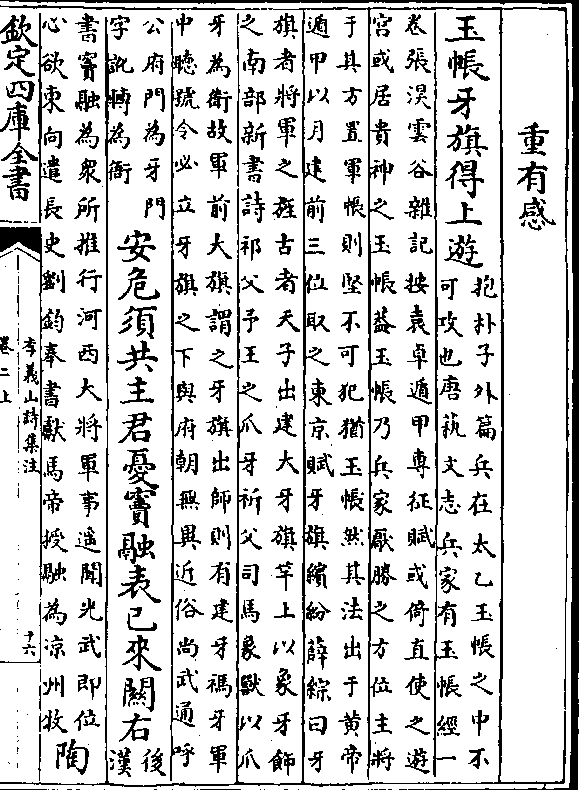 重有感
玉帳牙旗得上遊
抱朴子外篇兵在太乙玉帳之中不
可攻也唐藝文志兵家有玉帳經一
卷張淏雲谷雜記按袁卓遁甲專征賦或倚直使之遊
宮或居貴神之玉帳葢玉帳乃兵家厭勝之方位主將
于其方置軍帳則堅不可犯猶玉帳然其法出于黄帝
遁甲以月建前三位取之東京賦牙旗繽紛薛綜曰牙
旗者將軍之旌古者天子出建大牙旗竿上以象牙飾
之南部新書詩祁父予王之爪牙祈父司馬象獸以爪
牙為衛故軍前大旗謂之牙旗出師則有建牙禡牙軍
中聽號令必立牙旗之下與府朝無異近俗尚武通呼
公府門為牙門
字訛轉為衙
安危須共主君憂竇融表已來關右
後
漢
書竇融為衆所推行河西大將軍事遥聞光武即位
心欲東向遣長史劉鈞奉書獻馬帝授融為涼州牧
陶
欽定四庫全書
李義山詩集注
卷二上
十六